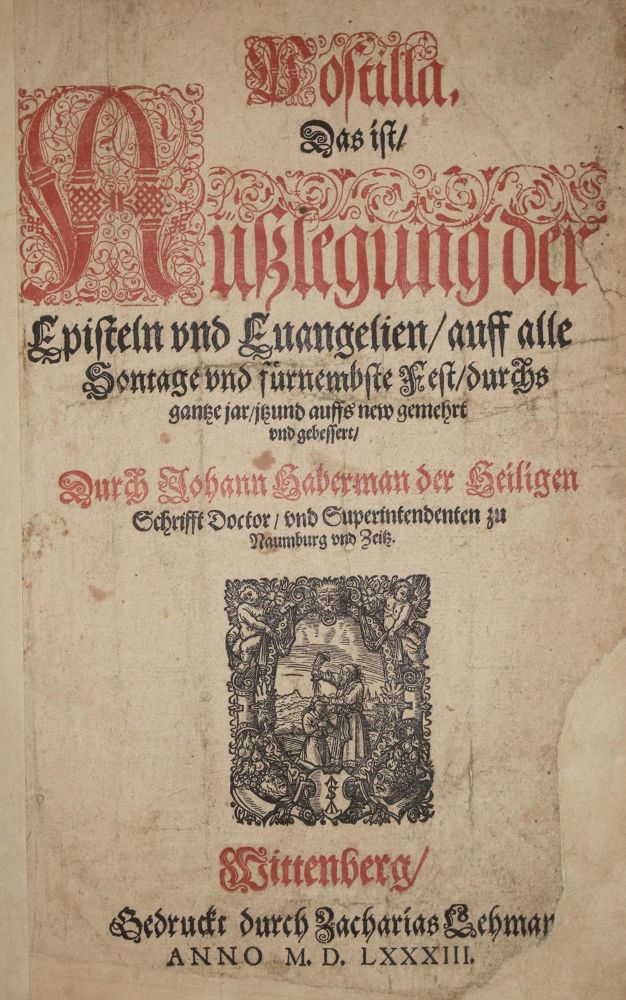 Postilla,
Das ist/
Außlegung der
Episteln vnd Euangelien/auff alle
Sontage vnd fürnembste Fest/durchs
gantze jar/jtzund auffs new gemehrt
vnd gebessert/
Durch Johann Haberman der Heiligen
Schrifft Doctor/ vnd Superintendenten zu
Naumburg vnd Zeitz.
Wittenberg/
Gedruckt durch Zacharias Lehman
ANNO M. D. LXXXIII.